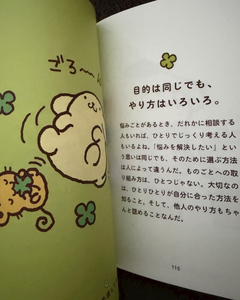 ごろ〜ん
目的は同じでも、
やり方はいろいろ。
悩みごとがあるとき、だれかに相談する
人もいれば、ひとりでじっくり考える人
もいるよね。「悩みを解決したい」とい
う思いは同じでも、そのために選ぶ方法
は人によって違うんだ。ものごとへの取
り組み方は、ひとつじゃない。大切なの
は、ひとりひとりが自分に合った方法を
知ること。そして、他人のやり方もちゃ
んと認めることなんだ。
115